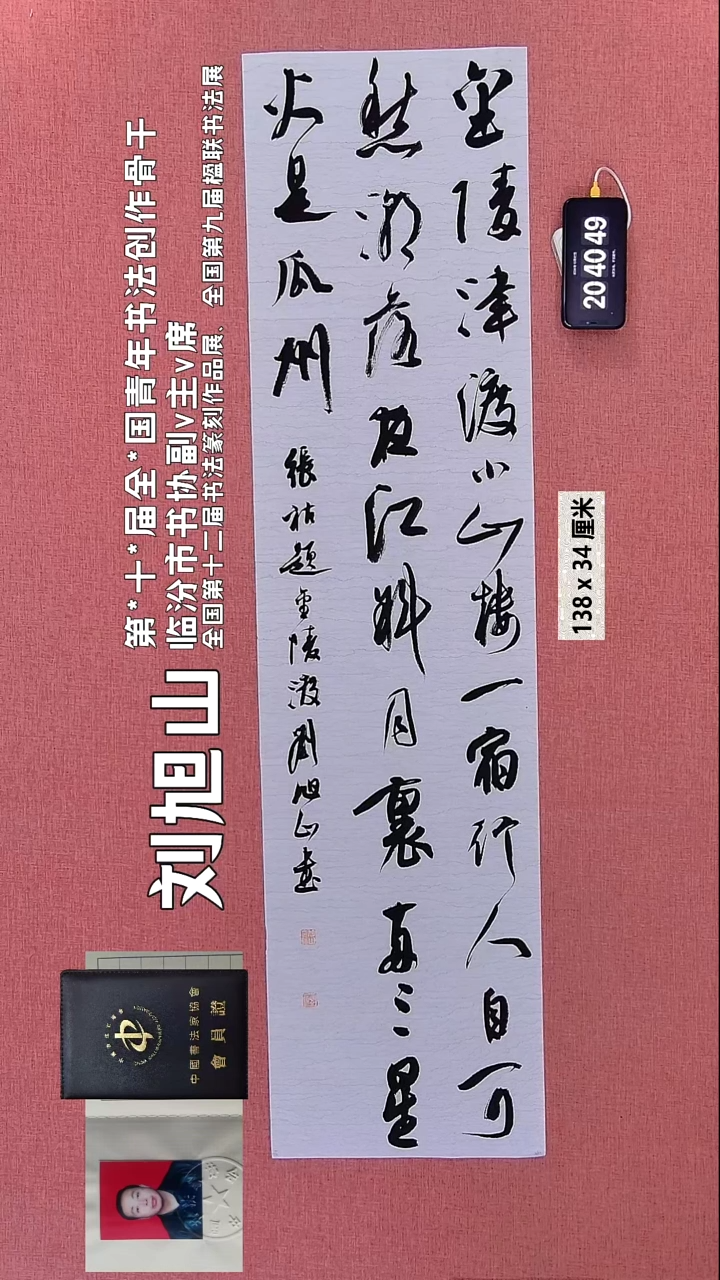 金陵津渡小山楼一宿行人自可
愁潮落夜江斜月裏两三星
火是瓜州
張祜題金陵渡劉旭山書
第*十*届全*国青年书法创作骨干
临汾市书协副v主v席
全国第十二届书法篆刻作品展、全国第九届楹联书法展
刘旭山
中國書法家協會
會員證
20 40 49
138 x 34 厘米